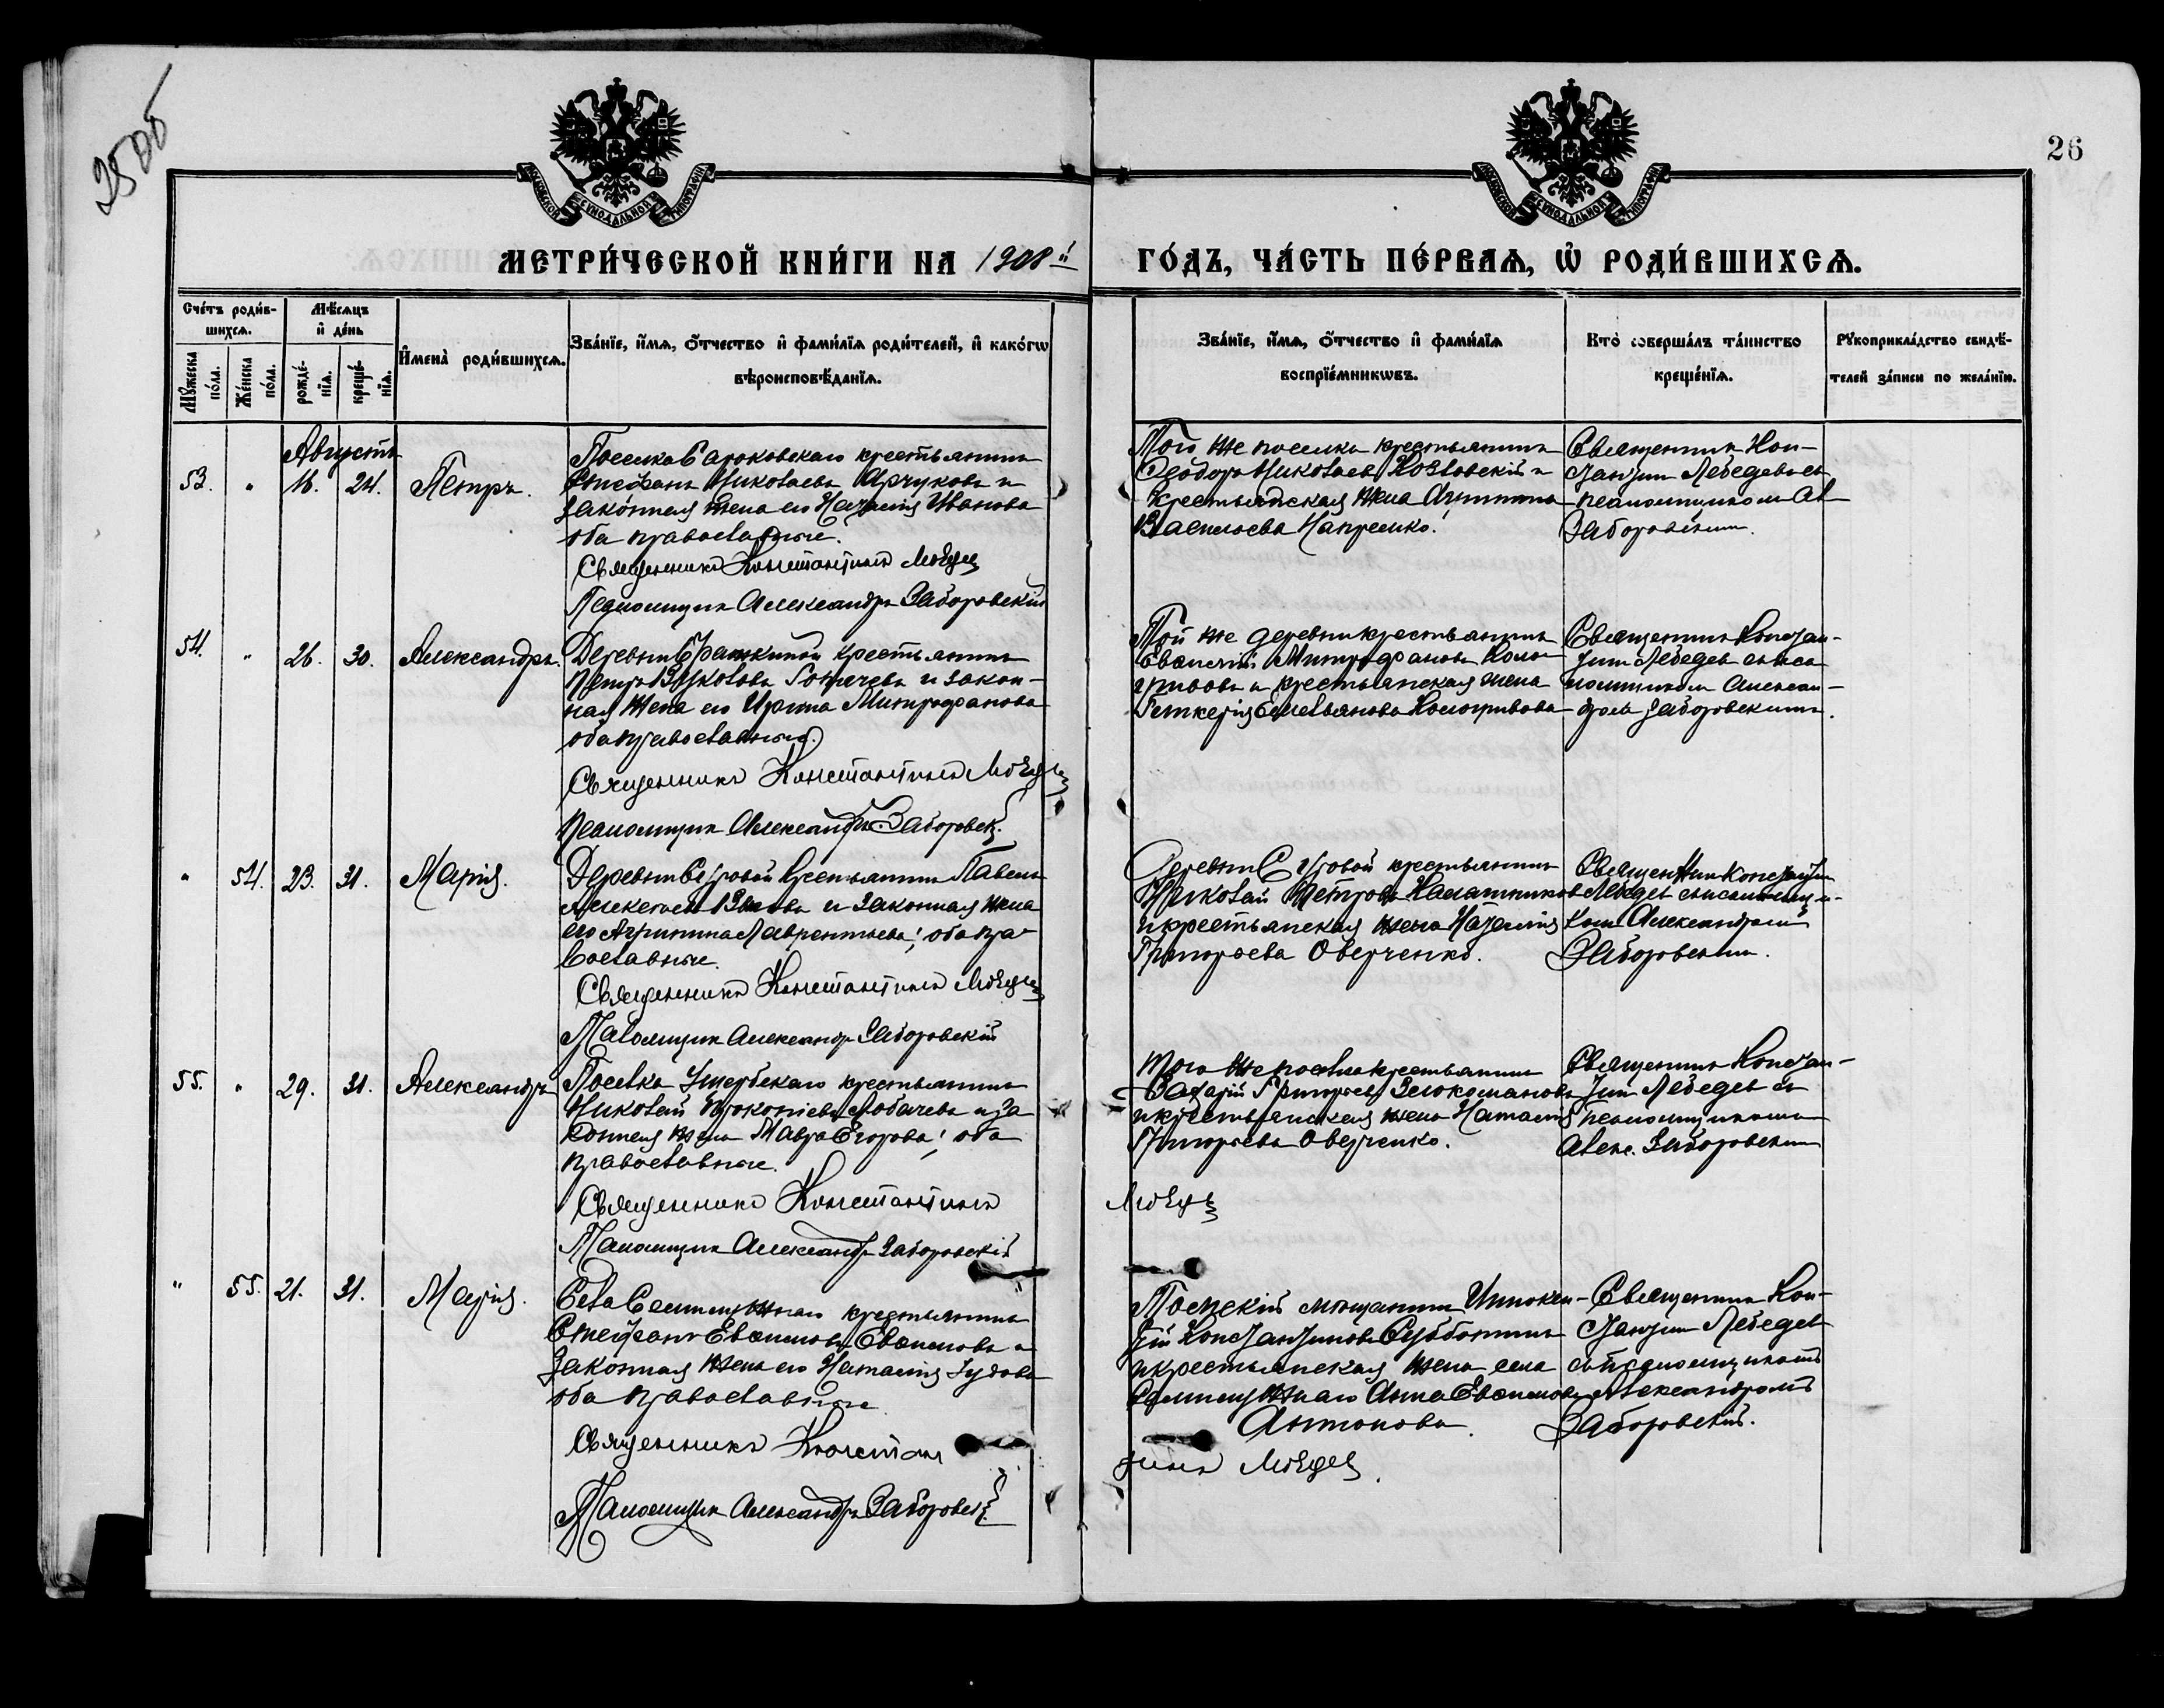 25об
26
МОСКОВСКОЙ СѴНОДАЛЬНОЙ ТИПОГРАФІИ
МОСКОВСКОЙ СѴНОДАЛЬНОЙ ТИПОГРАФІИ
МЕТРИ́ЧЕСКОЙ КНИ́ГИ НА 1908й
ГО́ДЪ, ЧА́СТЬ ПЕ́РВАѦ, Ѡ҆ РОДИ́ВШИХСѦ.
Сче́тъ роди́в-
шихсѧ.
Мꙋ́жеска
по́ла.
Же́нска
по́ла.
Мѣ́сѧцъ
и҆ де́нь
рожде́-
нїѧ.
креще́-
нїѧ.
И҆мена̀ роди́вшихсѧ.
Зва́нїе, и҆́мѧ, ѻ҆́тчество и҆ фами́лїѧ роди́телей, и҆ како́гѡ
вѣроисповѣ́данїѧ.
Зва́нїе, и҆́мѧ, ѻ҆́тчество и҆ фами́лїѧ
воспрїе́мникѡвъ.
Кто̀ соверша́лъ та́инство
креще́нїѧ.
Рꙋкоприкла́дство свидѣ́-
телей за́писи по жела́нїю.
Августъ
53. " 16. 24. Петръ.
Поселка крестьянинъ
Стефанъ Николаевъ Арчуковъ и
законная жена его Наталія Иванова
оба православные.
Священникъ Константинъ Лебедев
Псаломщикъ Александръ Заборовскій
Того же поселка крестьянинъ
Ѳеодоръ Николаевъ Козловскій и
крестьянская жена
Васильева
Священникъ Кон-
стантин Лебедевъ съ
псаломщикомъ Ал
Заборовскимъ.
54. " 26. 30. Александръ.
Деревни крестьянинъ
Петръ и закон-
ная жена его Ирина Митрофанова
оба православные.
Священникъ Константинъ Лебедев
Псаломщикъ Александръ Заборовск.
Той же деревни крестьянинъ
Евѳимій Митрофановъ Коло-
гривовъ и крестьянская жена
Гликерія Емельянова Кологривова
Священникъ Констан-
тин Лебедев съ пса
ломщикомъ Алексан-
дромъ Заборовскимъ.
" 54. 23. 31. Марія.
Деревни крестьянинъ Павелъ
Алексеевъ и законная жена
его Агрипина Лаврентьева; оба пра-
вославные.
Священникъ Константинъ Лебедев
Псаломщикъ Александр Заборовскій
Деревни крестьянинъ
Николай Петровъ Калашников
и крестьянская жена Наталія
Григорьева Оверченко.
Священник Константин
Лебедев съ псаломщи-
ком Александромъ
Заборовским.
55. " 29. 31. Александръ
Поселка крестьянинъ
Николай Прокопіевъ Лобачевъ и за
конная жена Мавра Егорова; оба
православные.
Священникъ Константинъ
Лебедев
Псаломщикъ Александр Заборовскій
Того же поселка крестьянинъ
Захарій Григорьевъ
и крестьянская жена Наталія
Григорьева Оверченко.
Священникъ Констан-
тин Лебедев съ
псаломщикомъ
Алекс. Заборовским
" 55. 21. 31. Марія.
Села крестьянинъ
Стефанъ Евѳимовъ Евѳимовъ и
законная жена его Наталія
оба православные
Священникъ Констан
тинъ Лебедев
Псаломщикъ Александръ Заборовск.
Томскій мѣщанинъ Иннокен-
тій Константиновъ Субботинъ
и крестьянская жена села
Анна Евѳимова
Антонова.
Священникъ Кон-
стантин Лебедев
съ псаломщикомъ
Александромъ
Заборовскій.